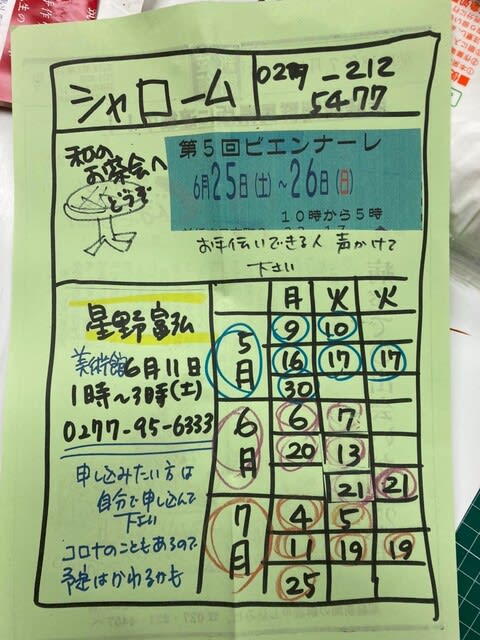 シャローム
027-212
5477
和の
お茶会へ
どうぞ
第5回ビエンナーレ
6月25日(土)~26日(日)
10時から5時
お手伝いできる人 声かけて
下さい
星野富弘
美術館6月11日
1時~3時(土)
0277-95-6333
申し込みたい方は
自分で申し込んで
下さい
コロナのこともあるので
予定はかわるかも
月 火 火
5月
9 10
16 17 17
30
6月
6 7
20 13
21 21
7月
4 5
11 19 19
25